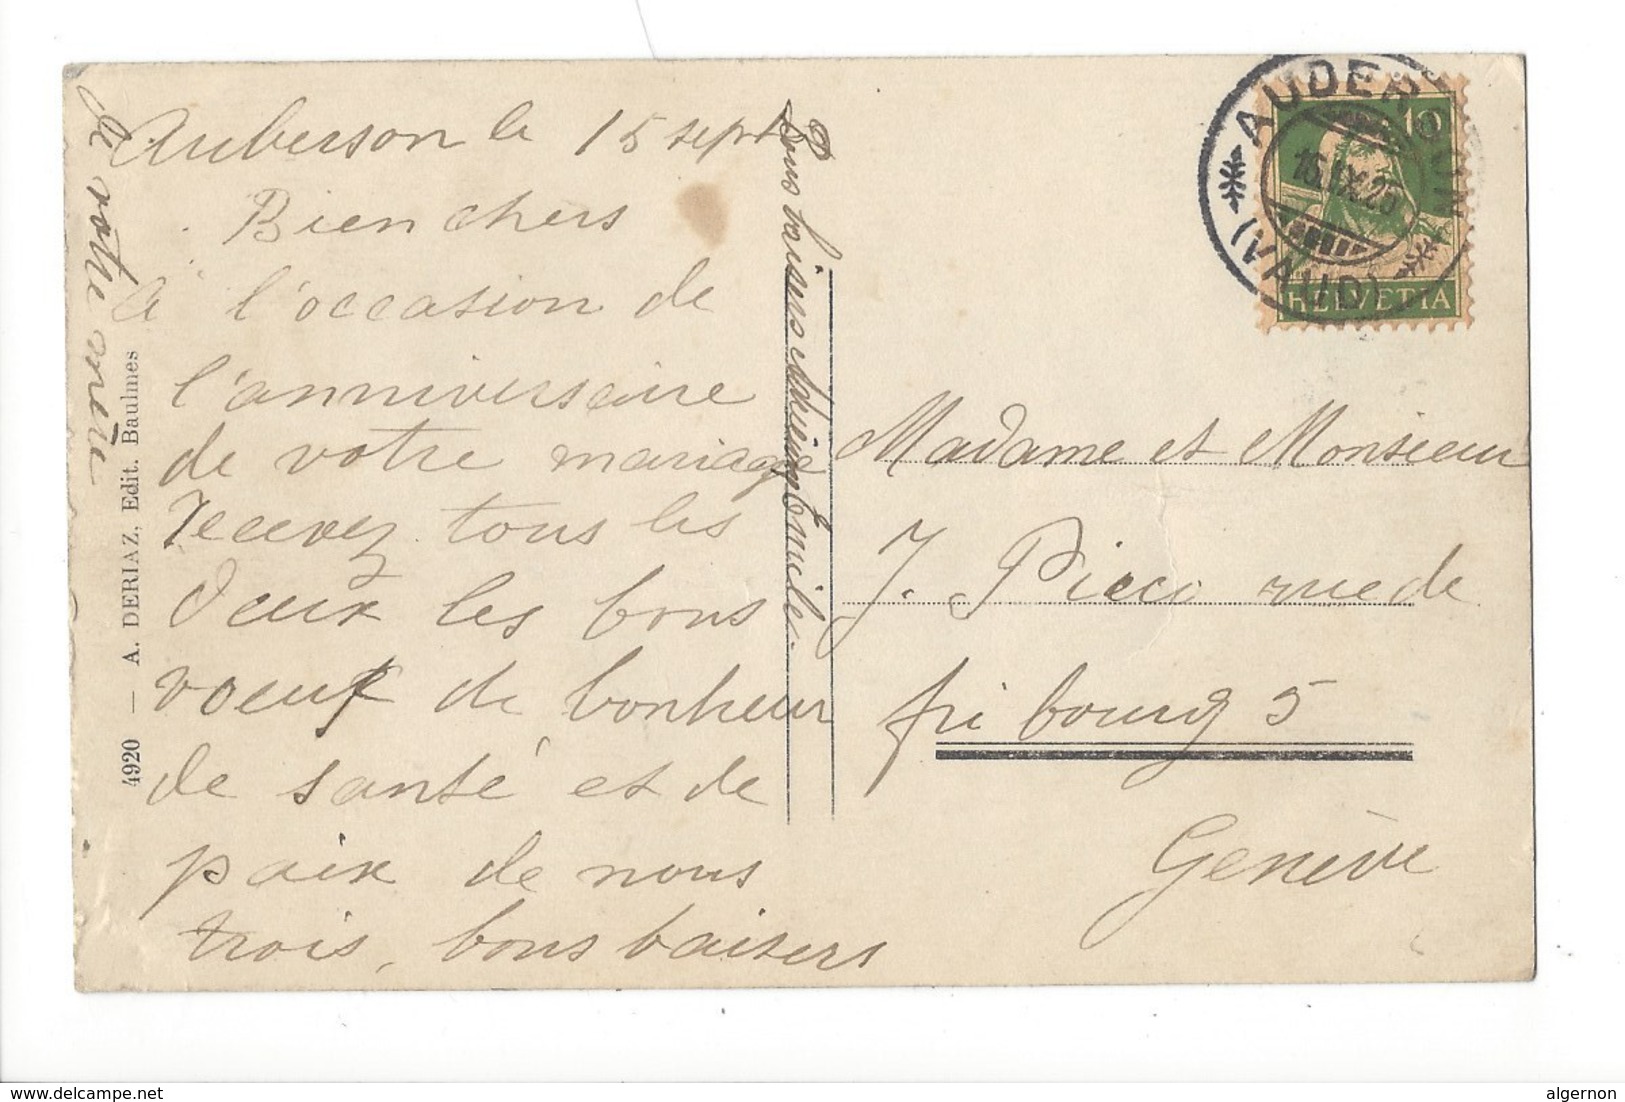 Auberson le 15 sept
Bien chers
A l'occasion de
l'anniversaire
de votre mariage
recevez tous les
deux les bons
voeux de bonheur
de santé et de
paix de nous
trois, bons baisers
de votre mère
Bons baisers Emile.
4920 — A. DERIAZ, Edit. Baulmes
AUBERSON
16.IX.25
(VAUD)
10
HELVETIA
Madame et Monsieur
J. Picco rue de
fribourg 5
Genève
www.delcampe.net
algernon